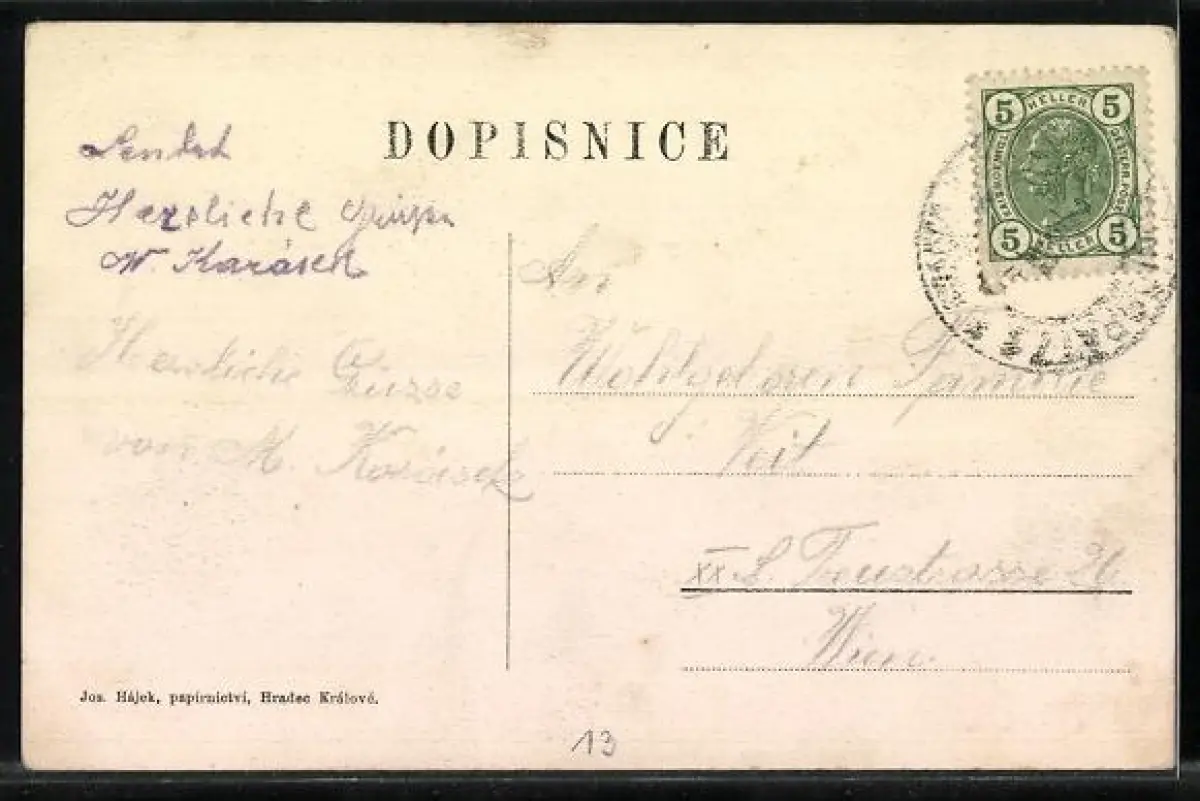 DOPISNICE
Sendet
Herzliche Grüsse
W. Karásek
Herzliche Grüsse
von M. Karásek
An
Wohlgeboren Familie
Veit
XX
Wien.
5 HELLER 5
5 HELLER 5
Jos. Hájek, papírnictví, Hradec Králové.
13